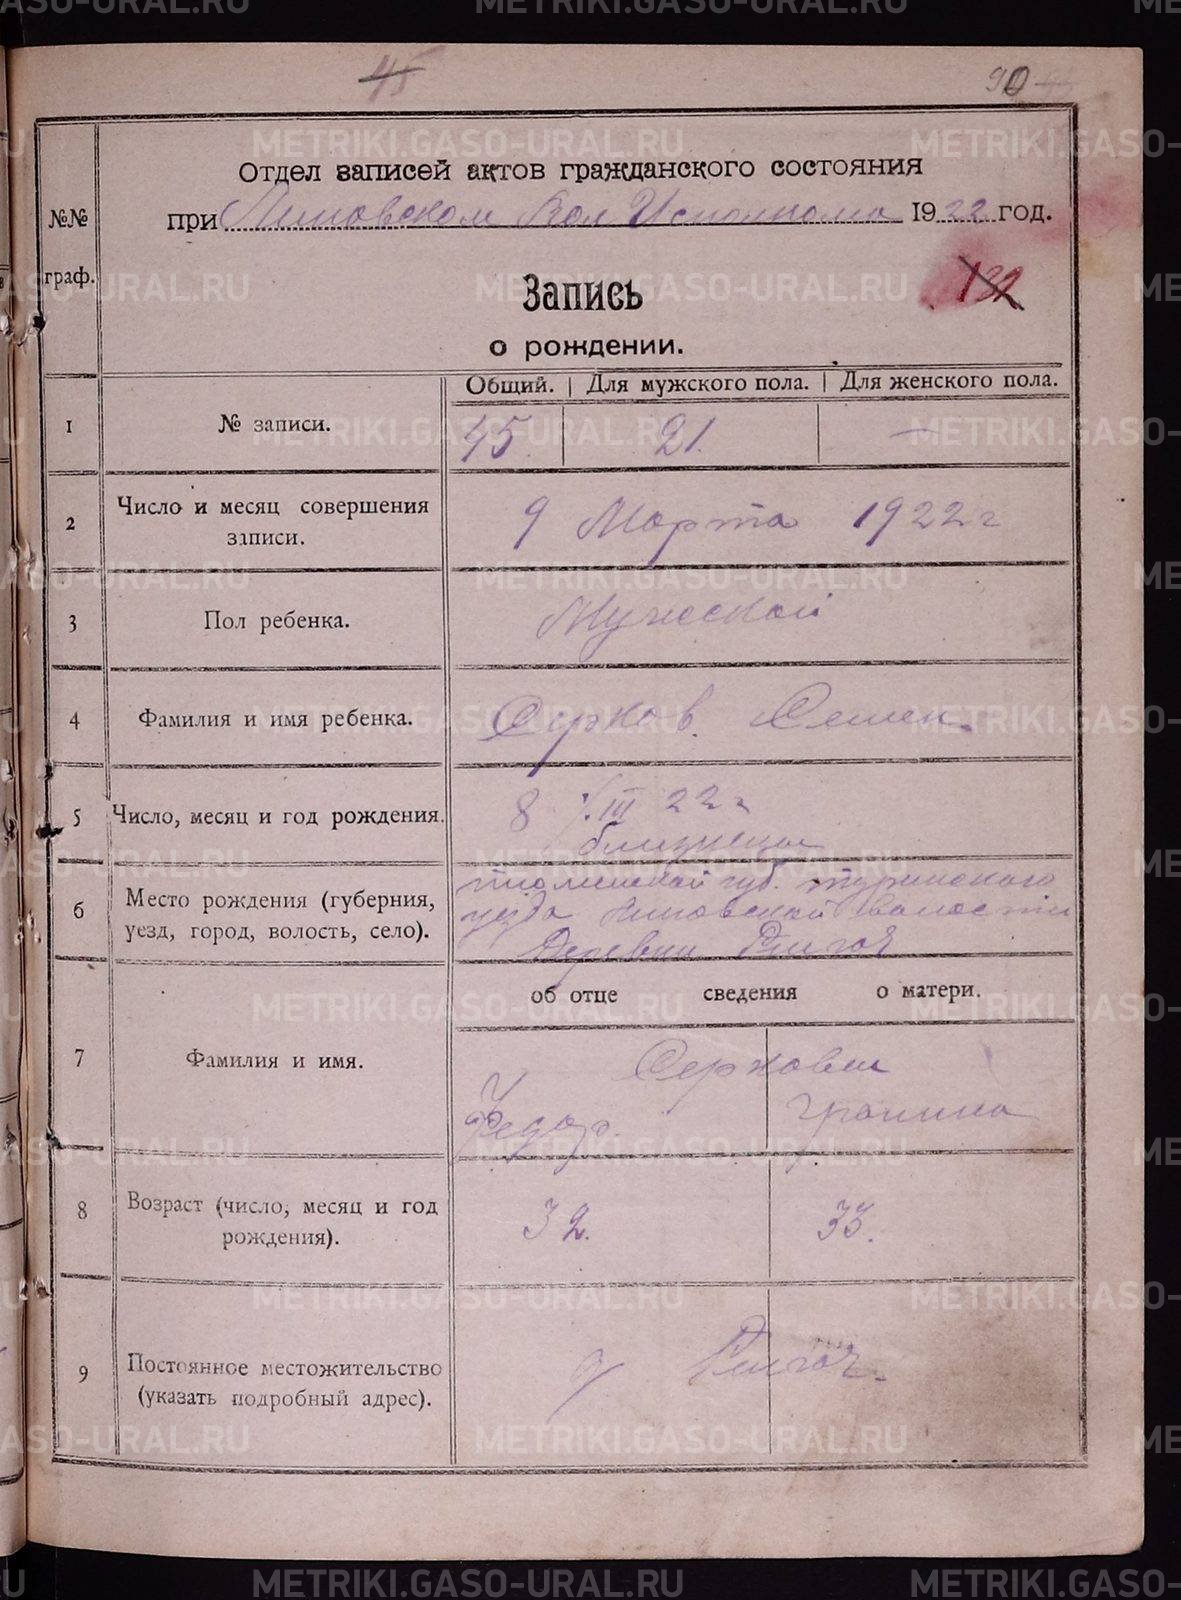 45
90
Отдел записей актов гражданского состояния
при Липовском Вол Исполкома 1922 год.
№№ граф.
132
Запись
о рождении.
Общий. | Для мужского пола. | Для женского пола.
1 № записи. 45 21. —
2 Число и месяц совершения записи. 9 Марта 1922 г
3 Пол ребенка. Мужской
4 Фамилия и имя ребенка. Серков. Семен.
5 Число, месяц и год рождения. 8/III 22 г
близнецы
6 Место рождения (губерния, уезд, город, волость, село). тюменской губ. туринского
уезда Липовской валости
Деревни
об отце сведения о матери.
7 Фамилия и имя. Серковы
Федор. Гранина
8 Возраст (число, месяц и год рождения). 32. 33.
9 Постоянное местожительство (указать подробный адрес). д
METRIKI.GASO-URAL.RU